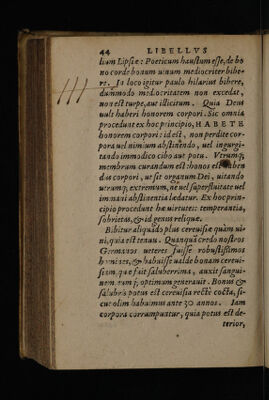 44 LIBELLVS
lium Lipsiæ: Poeticum haustum esse, de bo
no corde bonum uinum mediocriter bibe-
re. In loco igitur paulo hilarius bibere,
dummodo mediocritatem non excedat,
non est turpe, aut illicitum. Quia Deus
uult haberi honorem corpori. Sic omnia
procedunt ex hoc principio, HABETE
honorem corpori: id est, non perdite cor-
pora uel nimium abstinendo, uel ingurgi-
tando immodico cibo aut potu. Vtrumq;
membrum curandum est: honor
dus corpori, ut sit organum Dei, uitando
utrumq; extremum, ne uel superfluitate uel
immani abstinentia lædatur. Ex hoc prin-
cipio procedunt hæ uirtutes: temperantia,
sobrietas, & id genus reliquæ.
Bibitur aliquādo plus cereuisiæ quàm ui-
ni, quia est tenuis. Quanquā credo nostros
Germanos ueteres fuisse robustissimos
homines, & habuisse ualde bonam cereui-
siam, quæ fuit saluberrima, auxit sangui-
nem, eumq; optimum generauit. Bonus &
salubris potus est cereuisia rectè cocta, si-
cut olim habuimus ante 30 annos. Iam
corpora corrumpuntur, quia potus est de-
terior,